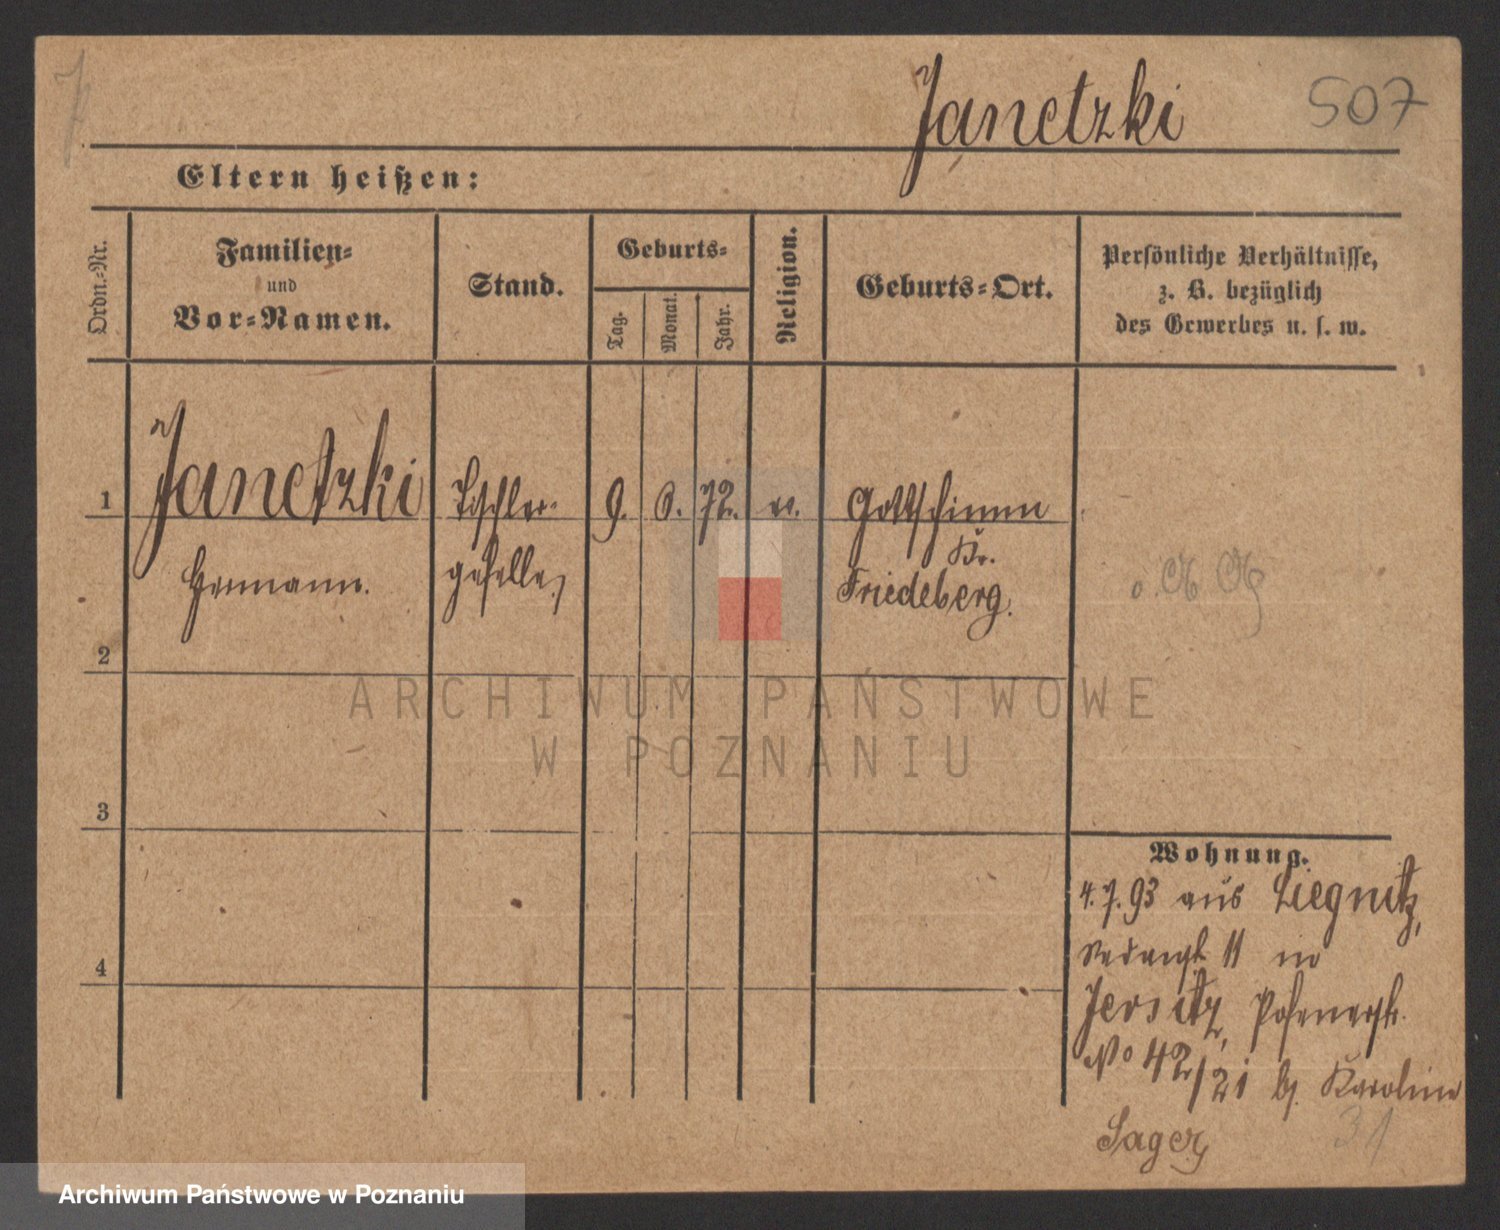 Janetzki 507
Eltern heißen:
Ordn.-Nr.
Familien-
und
Vor-Namen.
Stand.
Geburts-
Tag.
Monat.
Jahr.
Religion.
Geburts-Ort.
Persönliche Verhältnisse,
z. B. bezüglich
des Gewerbes u. s. w.
1 Janetzki Tischler- 9. 6. 72. ev. Gottschimm
Kr.
Hermann. geselle Friedeberg.
2
3
4
ARCHIWUM PAŃSTWOWE
W POZNANIU
Wohnung.
4.7.93 aus Liegnitz,
11 in
Jersitz, Posenerstr.
No 42/21 b/ Karoline
Sager
31
Archiwum Państwowe w Poznaniu